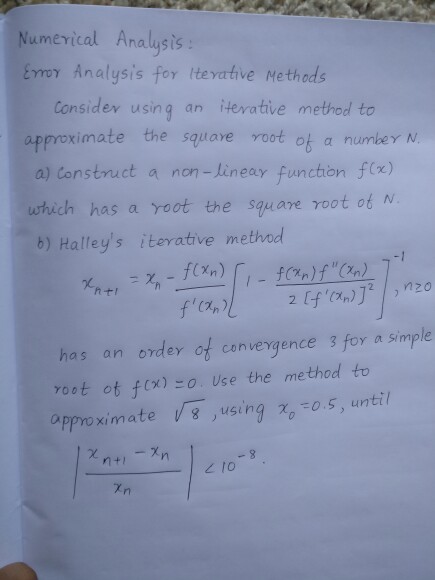 Numerical Analysis:
Error Analysis for Iterative Methods
Consider using an iterative method to
approximate the square root of a number N.
a) Construct a non-linear function f(x)
which has a root the square root of N.
b) Halley's iterative method
x_{n+1} = x_n - \frac{f(x_n)}{f'(x_n)} \left[ 1 - \frac{f(x_n) f''(x_n)}{2 [f'(x_n)]^2} \right]^{-1}, n≥0
has an order of convergence 3 for a simple
root of f(x) = 0. Use the method to
approximate √8, using x_0 = 0.5, until
\left| \frac{x_{n+1} - x_n}{x_n} \right| < 10^{-8}.